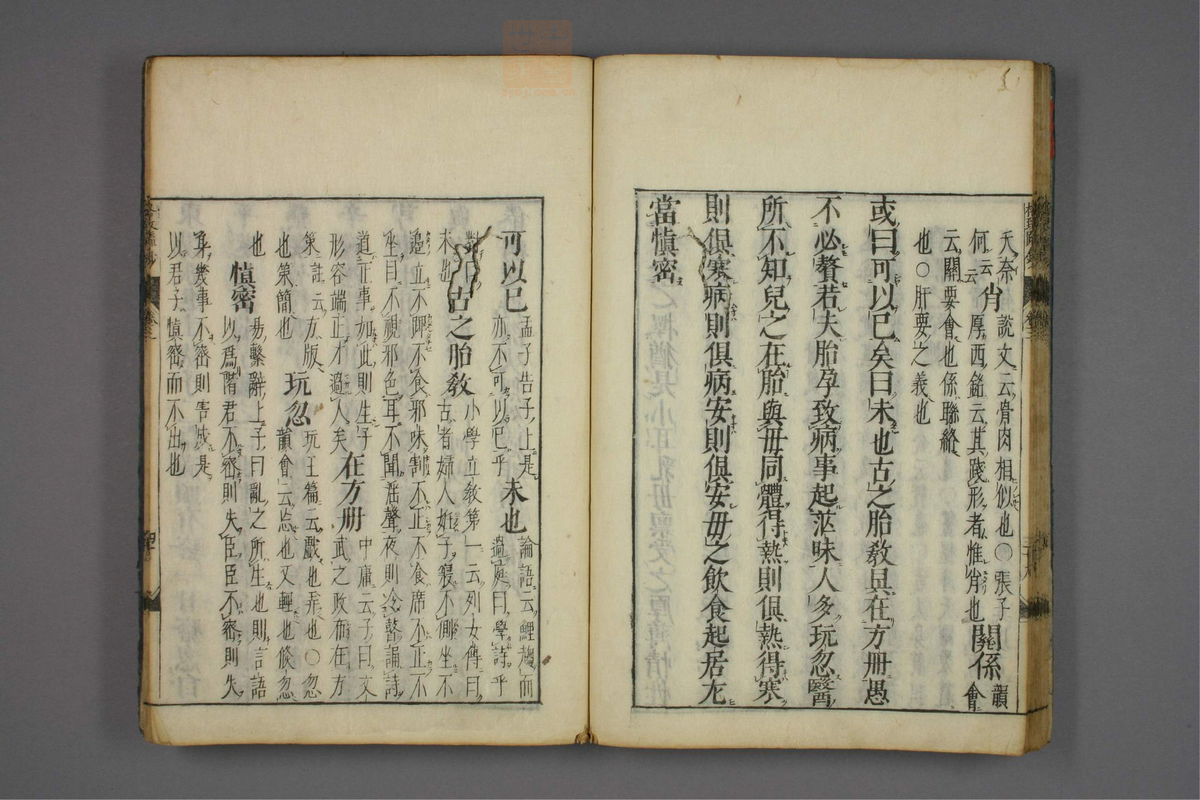 天奈
何云云
肖
說文云骨肉相似也〇張子
厚西銘云其踐形者惟肖也
關係
韻
會
云關要會也係聯絡
也〇肝要之義也
或曰可以已矣曰未也古之胎教具在方冊愚
不必贅若夫胎孕致病事起茫昧人多玩忽醫
所不知兒之在胎與母同體得熱則俱熱得寒
則俱寒病則俱病安則俱安母之飲食起居尤
當慎密
可以已
孟子告子上是
亦不可以已乎
未也
論語云鯉趨而
過庭曰學詩乎
對曰
未也
古之胎教
小學立教第一云列女傳曰
古者婦人妊子寢不側坐不
邉立不蹕不食邪味割不正不食席不正不
坐目不視邪色耳不聞淫聲夜則令瞽誦詩
道正事如此則生子
形容端正才過人矣
在方冊
中庸云子曰文
武之政布在方
策註云方版
也策簡也
玩忽
玩玉篇云戲也弄也〇忽
韻會云忘也又輕也倐忽
也
慎密
易繫辭上子曰亂之所生也則言語
以爲階君不密則失臣臣不密則失
身幾事不密則害成是
以君子慎密而不出也